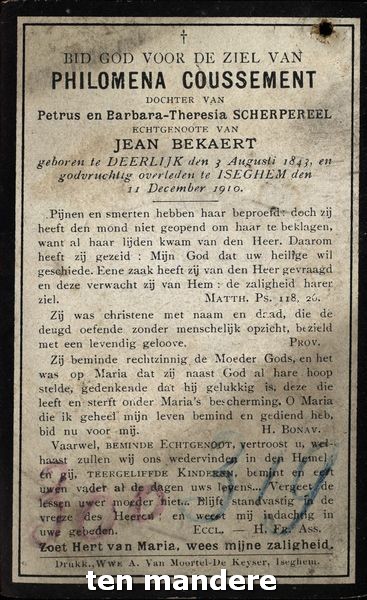 BID GOD VOOR DE ZIEL VAN
PHILOMENA COUSSEMENT
DOCHTER VAN
Petrus en Barbara-Theresia SCHERPEREEL
ECHTGENOOTE VAN
JEAN BEKAERT
geboren te DEERLIJK den 3 Augusti 1843, en
godvruchtig overleden te ISEGHEM den
11 December 1910.
Pijnen en smerten hebben haar beproefd: doch zij
heeft den mond niet geopend om haar te beklagen,
want al haar lijden kwam van den Heer. Daarom
heeft zij gezeid : Mijn God dat uw heilige wil
geschiede. Eene zaak heeft zij van den Heer gevraagd
en deze verwacht zij van Hem : de zaligheid harer
ziel. MATTH. PS. 118, 26.
Zij was christene met naam en daad, die de
deugd oefende zonder menschelijk opzicht, bezield
met een levendig geloove. PROV.
Zij beminde rechtzinnig de Moeder Gods, en het
was op Maria dat zij naast God al hare hoop
stelde, gedenkende dat hij gelukkig is, deze die
leeft en sterft onder Maria's bescherming. O Maria
die ik geheel mijn leven bemind en gediend heb,
bid nu voor mij. H. BONAV.
Vaarwel, BEMINDE ECHTGENOOT, vertroost u, wel-
haast zullen wij ons wedervinden in den Hemel
en gij, TEERGELIEFDE KINDEREN, bemint en eert
uwen vader al de dagen uws levens... Vergeet de
lessen uwer moeder niet... Blijft standvastig in de
vreeze des Heeren en weest mij indachtig in
uwe gebeden. ECCL. H. FR. ASS.
Zoet Hert van Maria, wees mijne zaligheid.
Drukk., WWE A. Van Moortel-De Keyser, Iseghem.
ten mandere